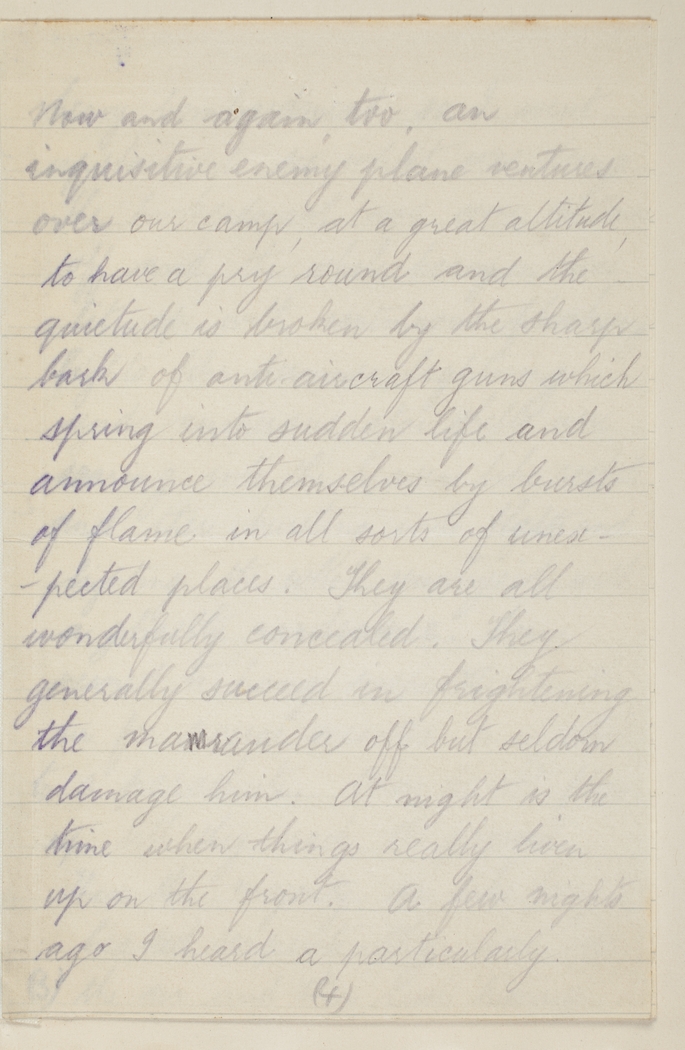 Now and again, too, an
inquisitive enemy plane ventures
over our camp, at a great altitude,
to have a pry round and the
quietude is broken by the sharp
bark of anti-aircraft guns which
spring into sudden life and
announce themselves by bursts
of flame in all sorts of unex-
-pected places. They are all
wonderfully concealed. They
generally succeed in frightening
the marauder off but seldom
damage him. At night is the
time when things really liven
up on the front. A few nights
ago I heard a particularly
(4)